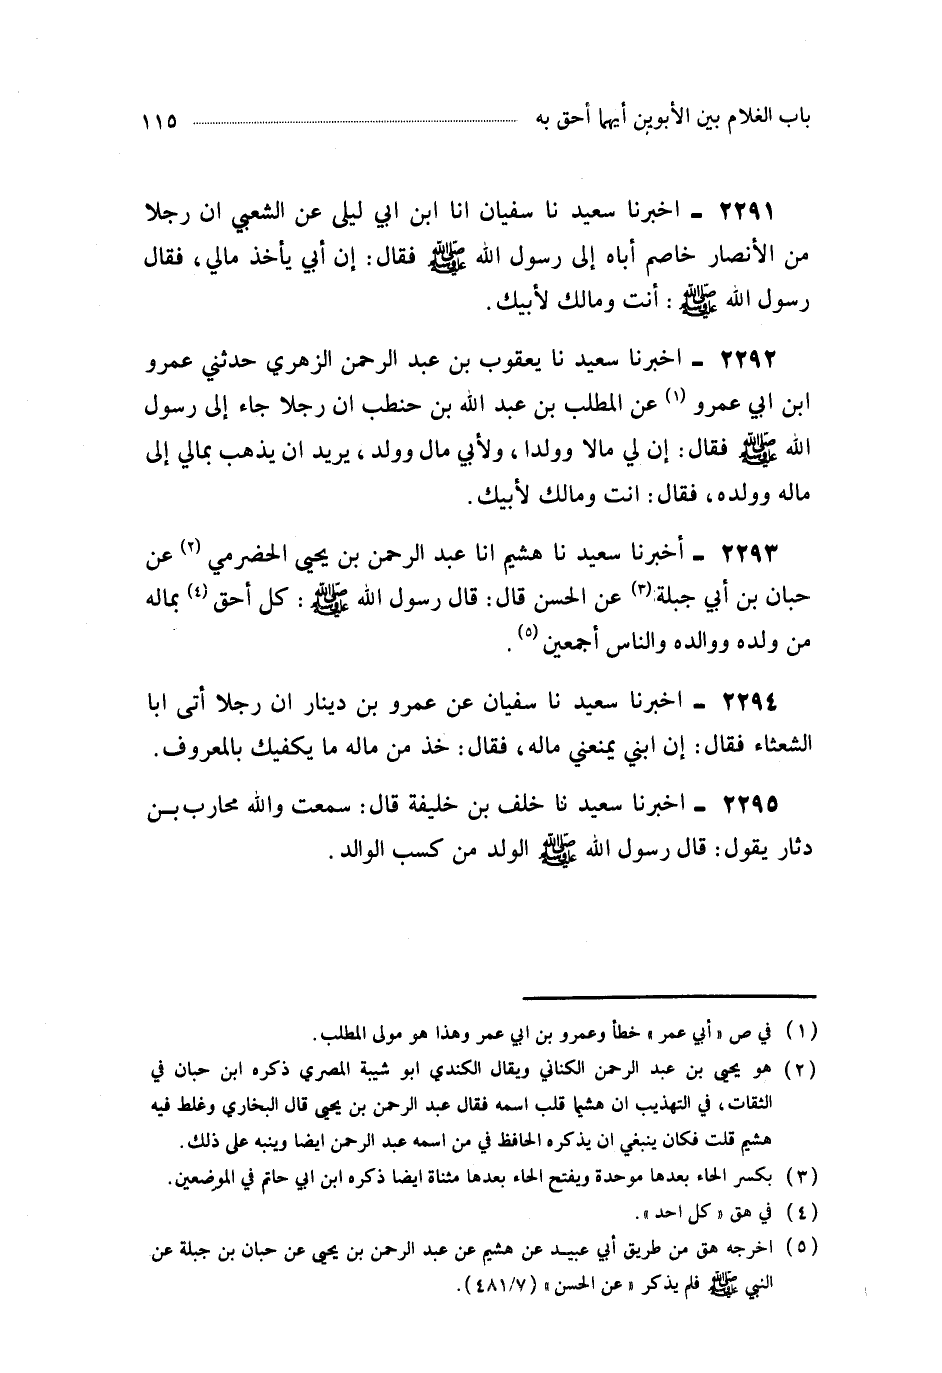 باب الغلام بين الأبوين أيهما أحق به ١١٥
٢٢٩١ ـ اخبرنا سعيد نا سفيان انا ابن ابي ليلى عن الشعبي ان رجلا
من الأنصار خاصم أباه إلى رسول الله ﷺ فقال: إن أبي يأخذ مالي، فقال
رسول الله ﷺ : أنت ومالك لأبيك.
٢٢٩٢ ـ اخبرنا سعيد نا يعقوب بن عبد الرحمن الزهري حدثني عمرو
ابن ابي عمرو (١) عن المطلب بن عبد الله بن حنطب ان رجلا جاء إلى رسول
الله ﷺ فقال: إن لي مالا وولدا، ولأبي مال وولد، يريد ان يذهب بمالي إلى
ماله وولده، فقال: انت ومالك لأبيك.
٢٢٩٣ ـ أخبرنا سعيد نا هشيم انا عبد الرحمن بن يحيى الحضرمي (٢) عن
حبان بن أبي جبلة (٣) عن الحسن قال: قال رسول الله ﷺ : كل أحق (٤) بماله
من ولده ووالده والناس أجمعين (٥) .
٢٢٩٤ ـ اخبرنا سعيد نا سفيان عن عمرو بن دينار ان رجلا أتى ابا
الشعثاء فقال: إن ابني يمنعني ماله، فقال: خذ من ماله ما يكفيك بالمعروف.
٢٢٩٥ ـ اخبرنا سعيد نا خلف بن خليفة قال: سمعت والله محارب بن
دثار يقول: قال رسول الله ﷺ الولد من كسب الوالد.
(١) في ص «أبي عمر» خطأ وعمرو بن ابي عمر وهذا هو مولى المطلب.
(٢) هو يحيى بن عبد الرحمن الكناني ويقال الكندي ابو شيبة المصري ذكره ابن حبان في
الثقات، في التهذيب ان هشيما قلب اسمه فقال عبد الرحمن بن يحيى قال البخاري وغلط فيه
هشيم قلت فكان ينبغي ان يذكره الحافظ في من اسمه عبد الرحمن ايضا وينبه على ذلك.
(٣) بكسر الحاء بعدها موحدة ويفتح الحاء بعدها مثناة ايضا ذكره ابن ابي حاتم في الموضعين.
(٤) في هق «كل احد».
(٥) اخرجه هق من طريق أبي عبيد عن هشيم عن عبد الرحمن بن يحيى عن حبان بن جبلة عن
النبي ﷺ فلم يذكر «عن الحسن» (٧/٤٨١).